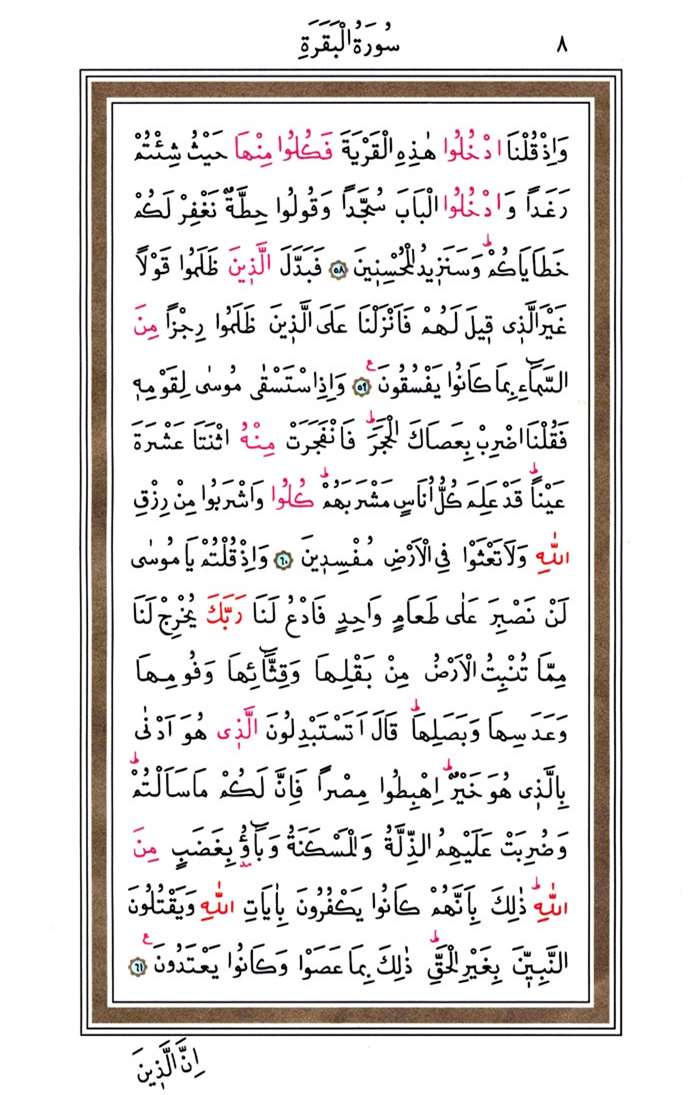 ٨ سُورَةُ الْبَقَرَةِ
وَاِذْ قُلْنَا ادْخُلُوا هٰذِهِ الْقَرْيَةَ فَكُلُوا مِنْهَا حَيْثُ شِئْتُمْ
رَغَداً وَادْخُلُوا الْبَابَ سُجَّداً وَقُولُوا حِطَّةٌ نَغْفِرْ لَكُمْ
خَطَايَاكُمْۜ وَسَنَزٖيدُ الْمُحْسِنٖينَ ﴿٥٨﴾ فَبَدَّلَ الَّذٖينَ ظَلَمُوا قَوْلاً
غَيْرَ الَّذٖى قٖيلَ لَهُمْ فَاَنْزَلْنَا عَلَى الَّذٖينَ ظَلَمُوا رِجْزاً مِنَ
السَّمَٓاءِ بِمَا كَانُوا يَفْسُقُونَ ع ﴿٥٩﴾ وَاِذِ اسْتَسْقٰى مُوسٰى لِقَوْمِهٖ
فَقُلْنَا اضْرِبْ بِعَصَاكَ الْحَجَرَۜ فَانْفَجَرَتْ مِنْهُ اثْنَتَا عَشْرَةَ
عَيْناًۜ قَدْ عَلِمَ كُلُّ اُنَاسٍ مَشْرَبَهُمْۜ كُلُوا وَاشْرَبُوا مِنْ رِزْقِ
اللّٰهِ وَلَا تَعْثَوْا فِى الْاَرْضِ مُفْسِدٖينَ ﴿٦٠﴾ وَاِذْ قُلْتُمْ يَا مُوسٰى
لَنْ نَصْبِرَ عَلٰى طَعَامٍ وَاحِدٍ فَادْعُ لَنَا رَبَّكَ يُخْرِجْ لَنَا
مِمَّا تُنْبِتُ الْاَرْضُ مِنْ بَقْلِهَا وَقِثَّٓائِهَا وَفُومِهَا
وَعَدَسِهَا وَبَصَلِهَاۜ قَالَ اَتَسْتَبْدِلُونَ الَّذٖى هُوَ اَدْنٰى
بِالَّذٖى هُوَ خَيْرٌۜ اِهْبِطُوا مِصْراً فَاِنَّ لَكُمْ مَا سَاَلْتُمْۜ
وَضُرِبَتْ عَلَيْهِمُ الذِّلَّةُ وَالْمَسْكَنَةُ وَبَٓاؤُ۫ بِغَضَبٍ مِنَ
اللّٰهِۜ ذٰلِكَ بِاَنَّهُمْ كَانُوا يَكْفُرُونَ بِاٰيَاتِ اللّٰهِ وَيَقْتُلُونَ
النَّبِيّٖنَ بِغَيْرِ الْحَقِّۜ ذٰلِكَ بِمَا عَصَوْا وَكَانُوا يَعْتَدُونَ ع ﴿٦١﴾
اِنَّ الَّذٖينَ